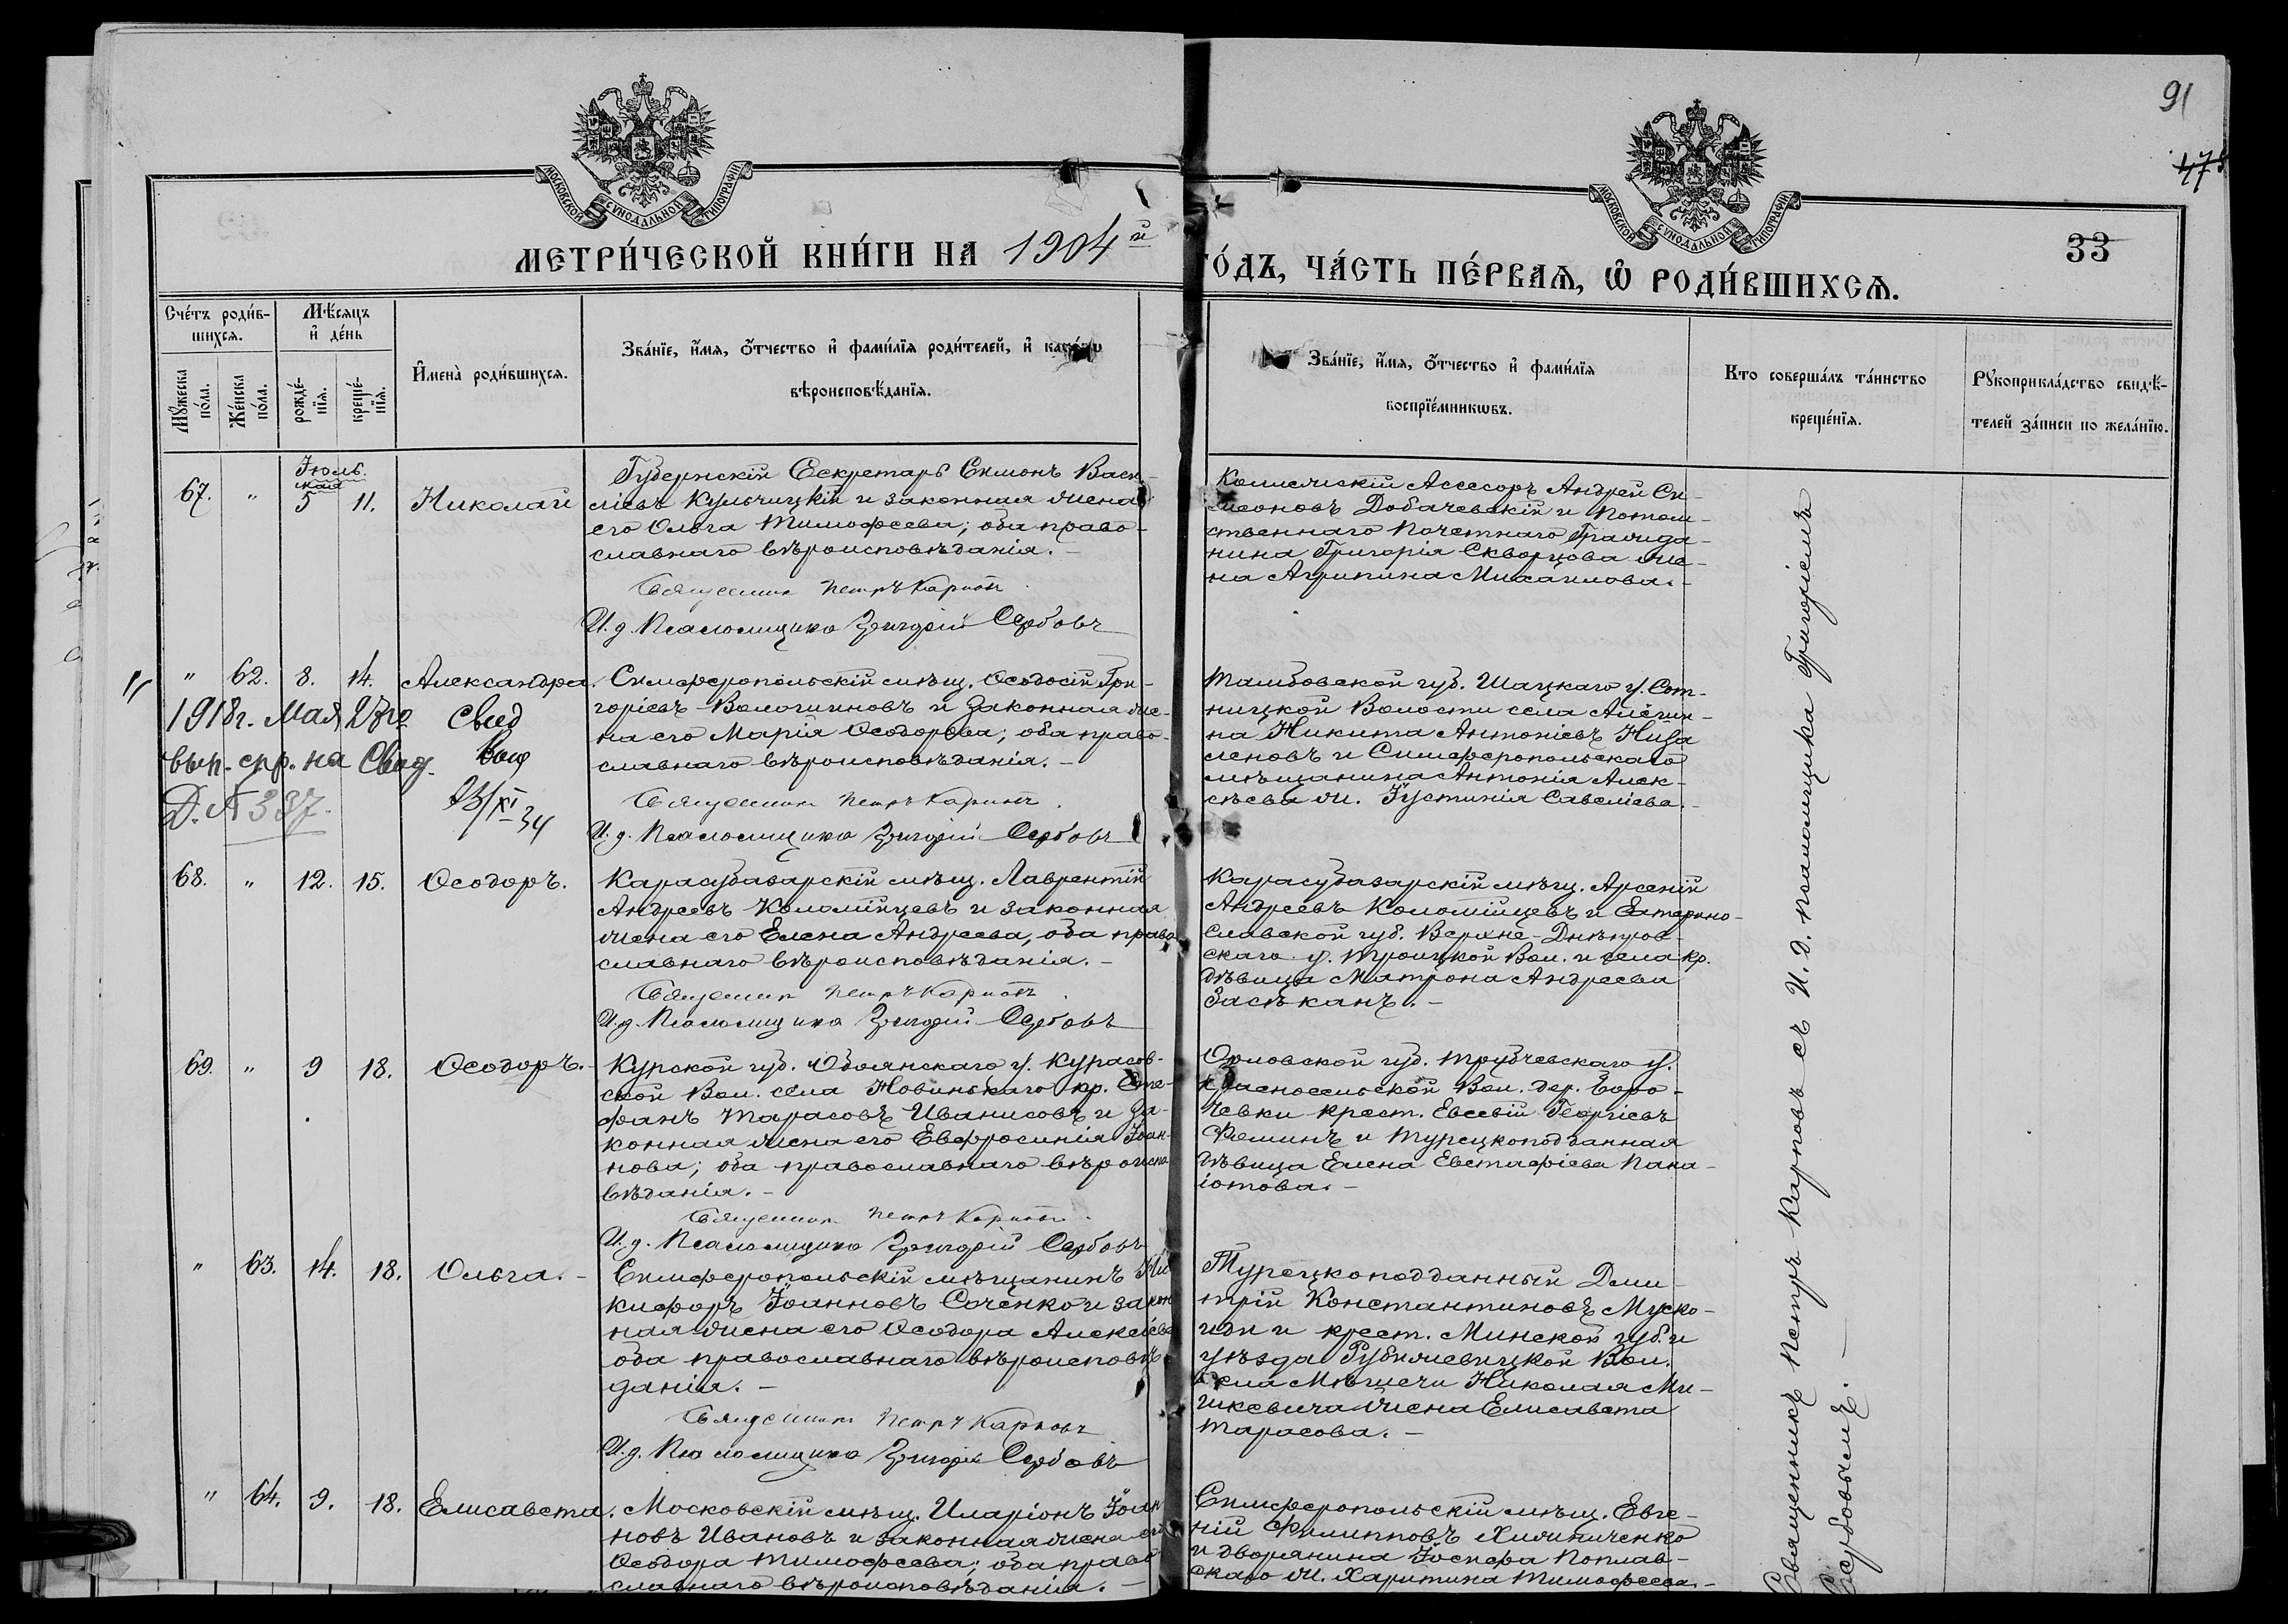 91
475
33
МОСКОВСКОЙ СѴНОДАЛЬНОЙ ТИПОГРАФІИ
МОСКОВСКОЙ СѴНОДАЛЬНОЙ ТИПОГРАФІИ
МЕТРИ́ЧЕСКОЙ КНИ́ГИ НА 1904й
ГО́ДЪ, ЧА́СТЬ ПЕ́РВАЯ, Ѡ РОДИ́ВШИХСЯ.
Сче́тъ роди́в-
шихся.
Мѣ́сяцъ
и҆ де́нь
Мꙋ́жеска по́ла.
Же́нска по́ла.
рожде́-
нїя.
креще́-
нїя.
И҆мена̀ роди́вшихся.
Зва́нїе, и҆́мя, ѻ҆́тчество и҆ фами́лїя роди́телей, и҆ како́гѡ
вѣроисповѣ́данїя.
Зва́нїе, и҆́мя, ѻ҆́тчество и҆ фами́лїя
воспрїе́мникѡвъ.
Кто̀ соверша́лъ та́инство
креще́нїя.
Рꙋкоприкла́дство свидѣ́-
телей за́писи по жела́нїю.
Іюль.
мая
67. " 5 11. Николай
Губернскій Секретарь Симонъ Васи-
ліевъ Кульчицкій и законная жена
его Ольга Тимофеева; оба право-
славнаго вѣроисповѣданія.-
Священник Петръ Карпов
И. д. Псаломщика Григорій Сербовъ
Коллежскій Ассесоръ Андрей Си-
меоновъ Добачевскій и потом-
ственнаго Почетнаго Гражда-
нина Григорія Скворцова же-
на Агрипина Михаилова.-
" 62. 8. 14. Александра.
Симферопольскій мѣщ. Ѳеодосій Гри-
горіевъ Вологинновъ и законная же-
на его Марія Ѳеодорова; оба право-
славнаго вѣроисповѣданія.-
Священник Петръ Карповъ
И. д. Псаломщика Григорій Сербовъ
1918г. Мая 23го
вып. спр. на Свад.
Д. № 337.
свид
выд
23/XI 34
Тамбовской губ. Шацкаго у. Сот-
ницкой Волости села Алёшин-
на Никита Антоніевъ Низа
леновъ и Симферопольскаго
мѣщанина Антонія Алек-
сѣева ж. Іустинія Савеліева.-
68. " 12. 15. Ѳеодоръ.
Карасубазарскій мѣщ. Лаврентій
Андреевъ Коломійцевъ и законная
жена его Елена Андреева, оба право
славнаго вѣроисповѣданія.-
Священник Петръ Карповъ
И. д. Псаломщика Григорій Сербовъ
Карасубазарскій мѣщ. Арсеній
Андреевъ Коломійцевъ и Екатерино-
славской губ. Верхне-Днѣпров-
скаго у. Троицкой Вол. и села кр.
дѣвица Матрона Андреева
Засѣканъ.-
69. " 9 18. Ѳеодоръ.-
Курской губ. Обоянскаго у. Курасов-
ской Вол. села Новинькаго кр. Сте-
фанъ Тарасовъ Иванисовъ и за-
конная жена его Евфросинія Іоан-
нова; оба православнаго вѣроиспо
вѣданія.-
Священник Петръ Карповъ
И. д. Псаломщика Григорій Сербовъ
Орловской губ. Трубчевскаго у.
Красносельской Вол. дер. Горо-
чевки крест. Евсевій Георгіевъ
Фоминъ и Турецкоподданная
дѣвица Елена Евстафіева Пана-
іотова.-
" 63. 14. 18. Ольга.-
Симферопольскій мѣщанинъ Ни
кифоръ Іоанновъ Саченко и закон
ная жена его Ѳеодора Алексіева
оба православнаго вѣроисповѣ
данія.-
Священник Петръ Карповъ
И. д. Псаломщика Григорій Сербовъ
Турецкоподданный Дми-
трій Константиновъ Муско-
иди и крест. Минской губ. и
уѣзда Рубижевицкой Вол.
села Мѣжечи Николая Ми-
цкевича жена Елисавета
Тарасова.-
" 64. 9. 18. Елисавета.
Московскій мѣщ. Иларіонъ Іоан
новъ Ивановъ и законная жена его
Ѳеодора Тимофеева; оба право
славнаго вѣроисповѣданія.-
Симферопольскій мѣщ. Евге-
ній Филипповъ Хижниченко
и дворянина Іосифа Поплав-
скаго ж. Харитина Тимофеева.-
Священникъ Петръ Карповъ съ И. д. псаломщика Григоріемъ
Сербовымъ.-